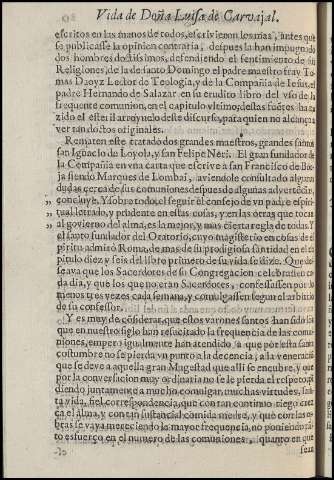 Vida de Doña Luisa de Carvajal.
escritos en las manos de todos, escrivieron los mas, antes que
se publicasse la opinion contraria, despues la han impugnado
dos hombres doctissimos, defendiendo el sentimiento de sus
Religiones, de la de santo Domingo el padre maestro fray Tomas
Daoyz Lector de Teologia, y de la Compañia de Iesus, el
padre Hernando de Salazar en su erudito libro del vso de la
frequente comunion, en el capitulo vltimo, destas fuẽtes ha
zido el este il arroyuelo deste discurso, para quien no alcançare
ver tan doctos originales.
Rematen este tratado dos grandes maestros, grandes santos
san Ignacio de Loyola, y san Felipe Neri. El gran fundador de
la Compañia en vna carta que escrive a san Francisco de Borja
siendo Marques de Lombai, aviendole consultado algunas
dudas cerca de sus comuniones despues de algunas advertẽcias,
„ concluye. Y sobre todo, el seguir el consejo de vn padre espiritual
„ letrado, y prudente en estas cosas, y en las otras que tocan
„ al govierno del alma, es la mejor, y mas cierta regla de todas. Y
el santo fundador del Oratorio, cuyo magisterio en cosas de espiritu
admirò Roma, de mas de su prodigiosa santidad en el capitulo
diez y seis del libro primero de su vida se dize. Que deseava
que los Sacerdotes de su Congregacion celebrassen cada
dia, y que los que no eran Sacerdotes, confessassen por lo
menos tres vezes cada semana, y comulgassen segun el arbitrio
de su confessor.
Y es muy de cõsiderar, que estos varones santos han sido los
que en nuestro siglo han resucitado la frequencia de las comuniones,
empero igualmente han atendido a que por esta santa
costumbre no se pierda vn punto a la decencia, a la veneracion
que se deve a aquella gran Magestad que alli se encubre, y que
por la conversacion muy ordinaria no se le pierda el respeto, pidiendo
juntamente a mucho comulgar, muchas virtudes, santa
vida, fiel correspondencia, que con tan continuo riego crezca
el alma, y con tan sustancial comida medre, y que con las obras
se vaya mereciendo la mayor frequencia, no poniendo tanto
esfuerço en el numero de las comuniones, quanto en que
sean